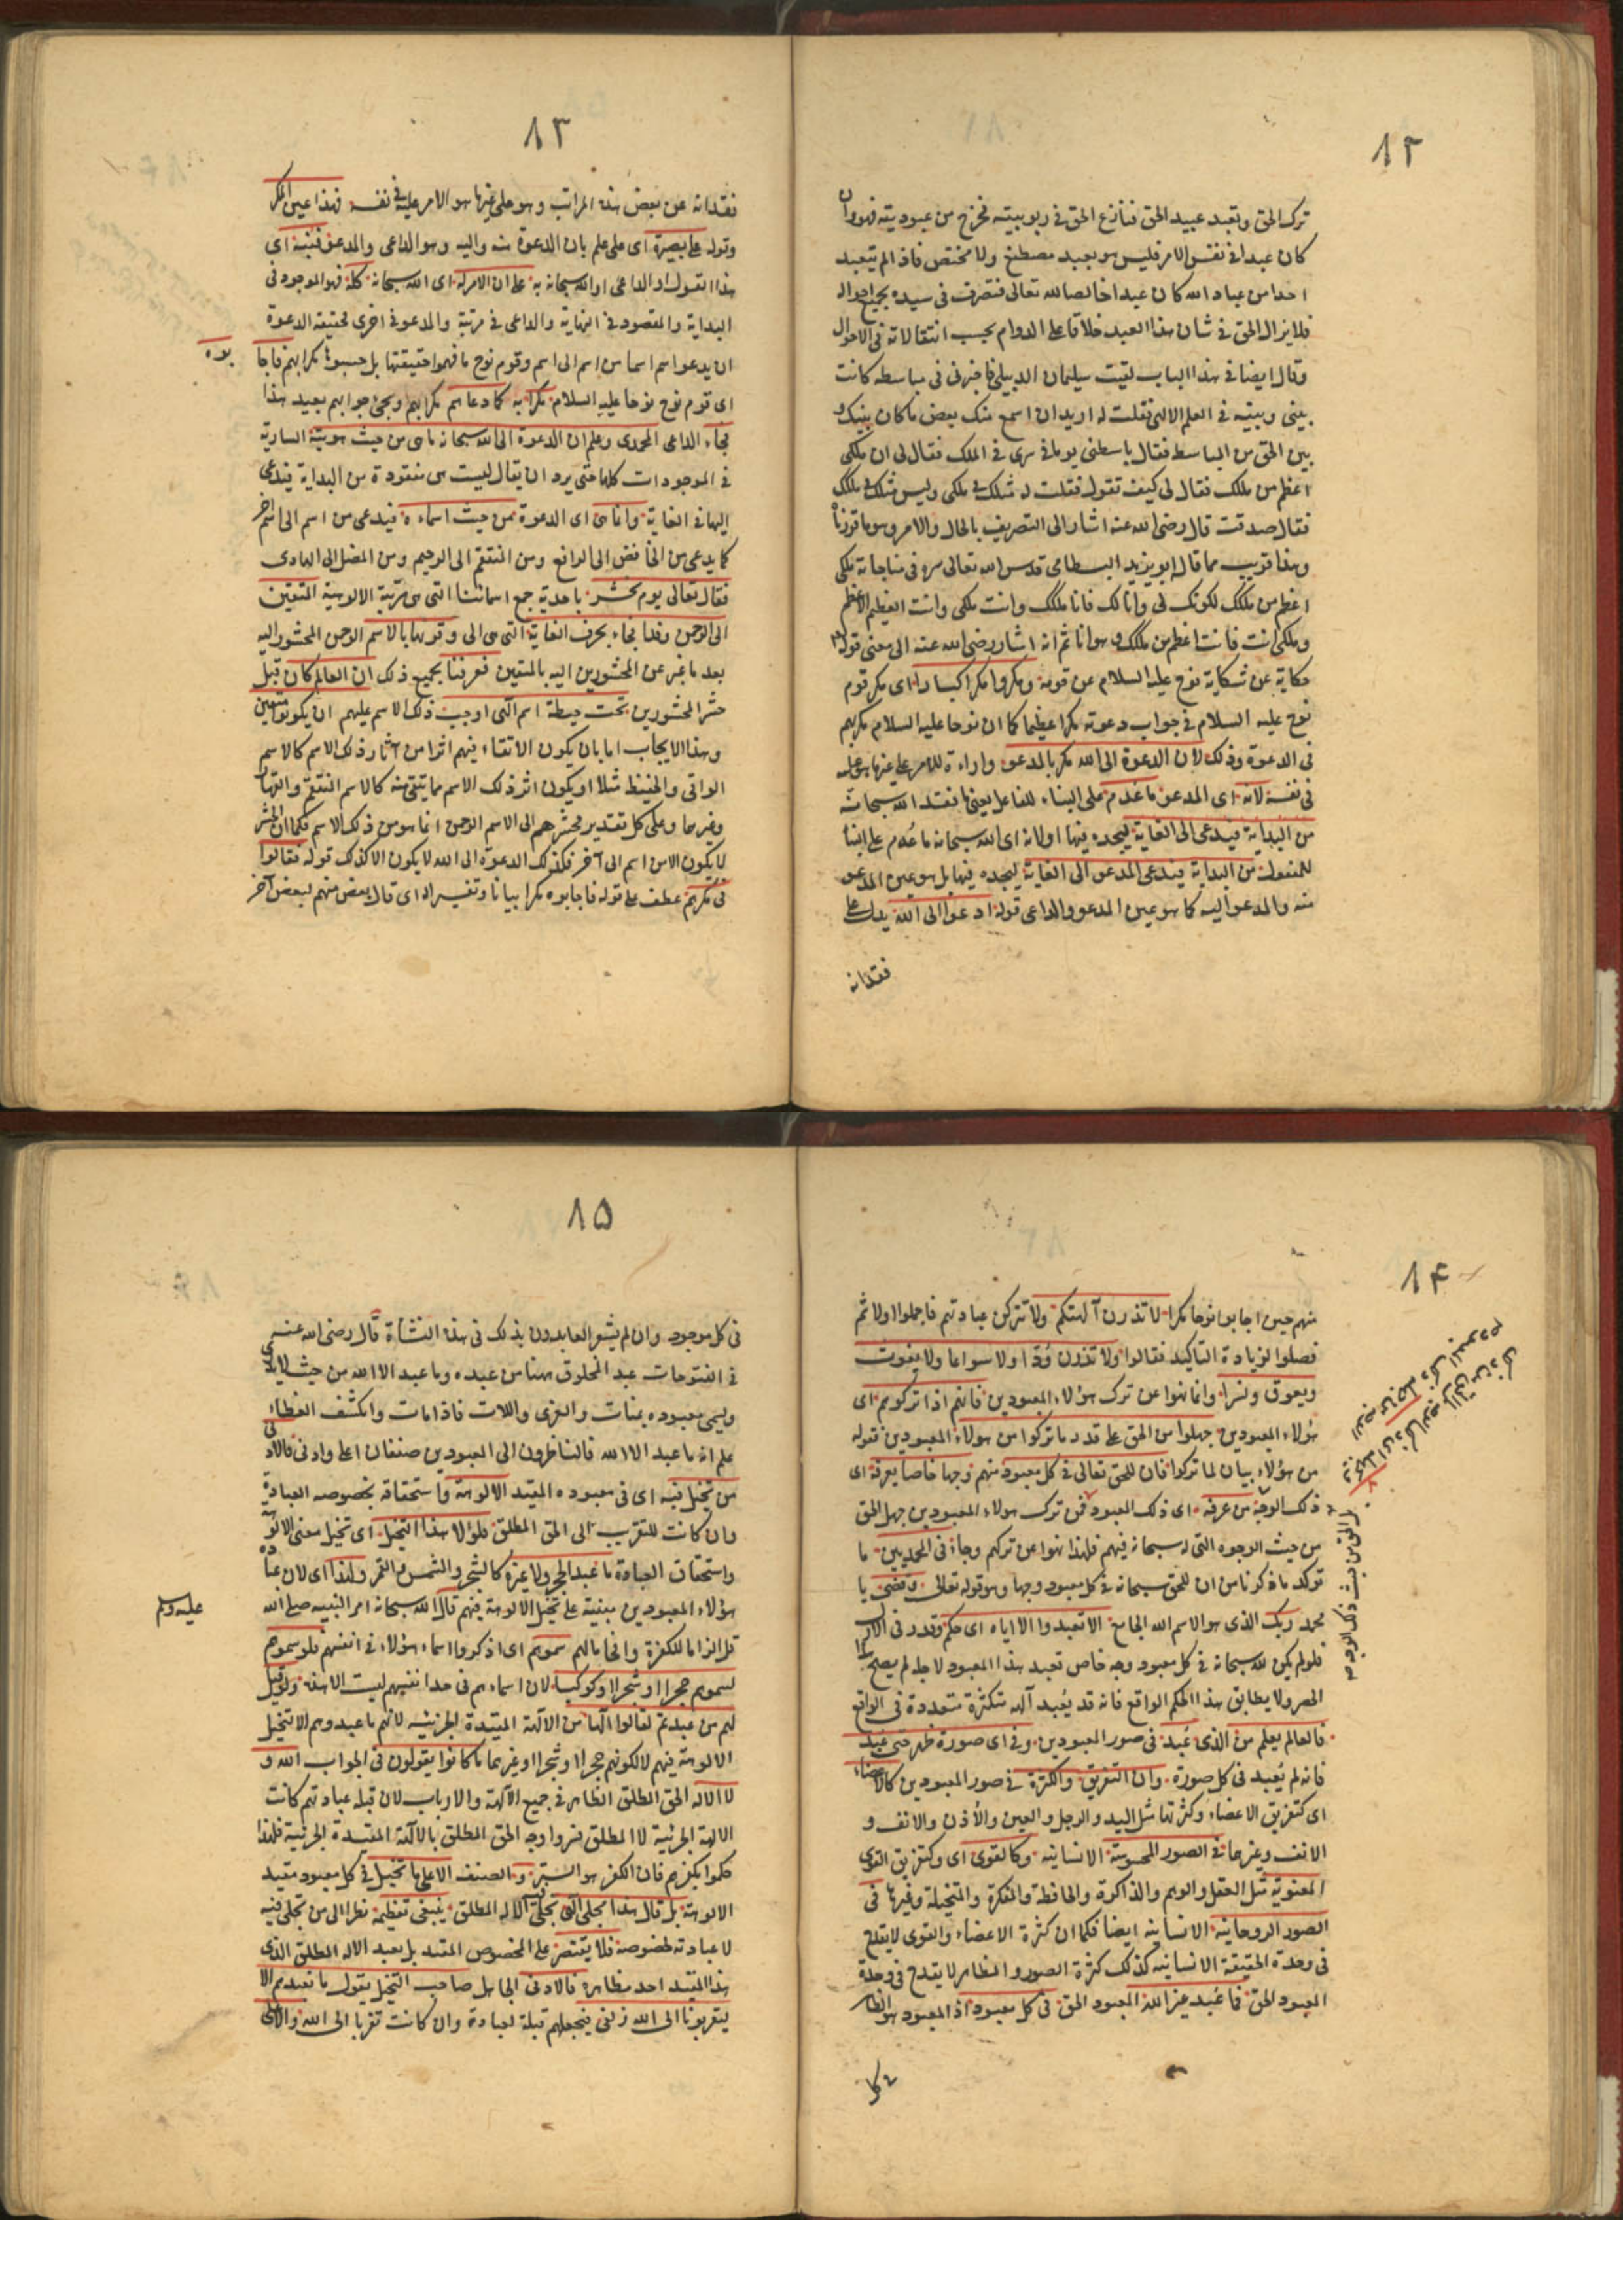 ٨٢
ترك الحق وتعبد عبيد الحق فنازع الحق في ربوبيته فخرج من عبوديته فهو وان
كان عبدا في نفس الامر فليس هو بعبد مصطنع ولا مختص فاذا لم يتعبد
احدا من عباد الله كان عبدا خالصا لله تعالى فتصرف في سيده بجميع احواله
فلا يزال الحق في شان هذا العبد خلاقا على الدوام بحسب انتقالاته في الاحوال
وقال ايضا في هذا الباب لقيت سليمان الدبيلي فاخبرني في مباسطه كانت
بيني وبينه في العلم الالهي فقلت له اريد ان اسمع منك بعض ما كان بينك و
بين الحق من المباسط فقال باسطني يوما في سري في الملك فقال لي ان ملكي
اعظم من ملكك فقال لي كيف تقول فقلت له مثلك في ملكي وليس مثلك في ملكك
فقال صدقت قال رضى الله عنه اشار الى التصريف بالحال والامر وهو ما قررناه
وهذا قريب مما قاله ابو يزيد البسطامى قدس الله تعالى سره في مناجاته ملكي
اعظم من ملكك لكونك لي وانا لك فانا ملكك وانت ملكي وانت العظيم الاعظم
وملكي انت فانت اعظم من ملكك وهو انا ثم انه اشار رضى الله عنه الى معنى قوله
حكاية عن شكاية نوح عليه السلام عن قومه ومكروا مكرا كبارا اى مكر قوم
نوح عليه السلام في جواب دعوته مكرا عظيما كما ان نوحا عليه السلام مكر بهم
في الدعوة وذلك لان الدعوة الى الله مكر بالمدعو واراءة للامر على غير ما هو عليه
في نفسه لانه اى المدعو ما عدم على البناء للفاعل يعنى ما فقد الله سبحانه
من البداية فيدعى الى الغاية ليجده فيها اولانه اى الله سبحانه ما عدم على البناء
للمفعول من البداية فيدعى المدعو الى الغاية ليجده فيها بل هو عين المدعو
منه والمدعو اليه كما هو عين المدعو والداعى قوله ادعوا الى الله يدل على
فقدانه
٨٣
فقدانه عن بعض هذه المراتب وهو على غير ما هو الامر عليه في نفسه فهذا عين المكر
وقوله على بصيرة اى على علم بان الدعوة منه واليه وهو الداعى والمدعو فنبه اى
هذا القول او الداعى او الله سبحانه به على ان الامر له اى الله سبحانه كله فهو الموجود في
البداية والمقصود في النهاية والداعى في مرتبة والمدعو في اخرى لحقيقة الدعوة
ان يدعو اسم اسما من اسم الى اسم وقوم نوح ما فهموا حقيقتها بل حسبوها مكرا بهم فاجا
بوه
اى قوم نوح نوحا عليه السلام مكرا به كما دعاهم مكرا بهم ويجئ جوابهم بعيد هذا
فجاء الداعى المحمدى وعلم ان الدعوة الى الله سبحانه ما هى من حيث هويته السارية
في الموجودات كلها حتى يرد ان يقال ليست هى مفقودة من البداية فيدعى
اليها في الغاية وانما هى اى الدعوة من حيث اسماءه فيدعى من اسم الى اسم آخر
كما يدعى من الخافض الى الرافع ومن المنتقم الى الرحيم ومن المضل الى الهادى
فقال تعالى يوم نحشر باحدية جمع اسمائنا التى هى مرتبة الالوهية المتقين
الى الرحمن وفدا فجاء بحرف الغاية التى هى الى وقرنها بالاسم الرحمن المحشور اليه
بعد ما عبر عن المحشورين اليه بالمتقين فعرفنا بجميع ذلك ان العالم كان قبل
حشر المحشورين تحت حيطة اسم الهى اوجب ذلك الاسم عليهم ان يكونوا متقين
وهذا الايجاب اما بان يكون الاتقاء فيهم اثرا من آثار ذلك الاسم كالاسم
الواقى والحفيظ مثلا او يكون اثر ذلك الاسم مما يتقى منه كالاسم المنتقم والقهار
وغيرهما وعلى كل تقدير فحشرهم الى الاسم الرحمن انما هو من ذلك الاسم فكما ان الحشر
لا يكون الا من اسم الى آخر فكذلك الدعوة الى الله لا يكون الا كذلك قوله فقالوا
في مكرهم عطف على قوله فاجابوه مكرا بيانا وتفسيرا له اى قال بعض منهم لبعض آخر
٨۴
منهم حين اجابوا نوحا مكرا لا تذرن آلهتكم ولا تتركن عبادتهم فاجملوا اولا ثم
فصلوا لزيادة التاكيد فقالوا ولا تذرن ودا ولا سواعا ولا يغوث
ويعوق ونسرا وانما نهوا عن ترك هؤلاء المعبودين فانهم اذا تركوهم اى
هؤلاء المعبودين جهلوا من الحق على قدر ما تركوا من هؤلاء المعبودين فقوله
من هؤلاء بيان لما تركوا فان للحق تعالى في كل معبود منهم وجها خاصا يعرفه اى
ذلك الوجه من عرفه اى ذلك المعبود فمن ترك هؤلاء المعبودين جهل الحق
من حيث الوجوه التى له سبحانه فيهم فلهذا نهوا عن تركهم وجاء في المحمديين ما
توكد ما ذكرنا من ان للحق سبحانه في كل معبود وجها وهو قوله تعالى وقضى يا
محمد ربك الذى هو الاسم الله الجامع الا تعبدوا الا اياه اى حكم وقدر في الازل
فلو لم يكن لله سبحانه في كل معبود وجه خاص تعبد هذا المعبود لاجله لم يصح هذا
الحصر ولا يطابق هذا الحكم الواقع فانه قد يعبد آلهة متكثرة متعددة في الواقع
فالعالم يعلم من الذى عبد في صور المعبودين وفي اى صورة ظهر حتى عبد
فانه لم يعبد في كل صورة وان التفريق والكثرة في صور المعبودين كالاعضاء
اى كتفريق الاعضاء وكثرتها مثل اليد والرجل والعين والأذن والانف و
الانف وغيرها في الصور المحسوسة الانسانية وكالقوى اى وكتفريق القوى
المعنوية مثل العقل والوهم والذاكرة والحافظة والمفكرة والمتخيلة وغيرها في
الصور الروحانية الانسانية ايضا فكما ان كثرة الاعضاء والقوى لا يقدح
في وحدة الحقيقة الانسانية كذلك كثرة الصور والمظاهر لا يقدح في وحدة
المعبود الحق فما عبد غير الله المعبود الحق في كل معبود اذ المعبود هو الظاهر
في كل
٨۵
في كل موجود وان لم يشعر العابدون بذلك في هذه النشأة قال رضى الله عنه
في الفتوحات عبد المخلوق ههنا من عبده وما عبد الا الله من حيث لا يدرى
ويسمى معبوده بمناة والعزى واللات فاذا مات وانكشف الغطاء
علم انه ما عبد الا الله فالناظرون الى المعبودين صنفان اعلى وادنى فالادنى
من تخيل فيه اى في معبوده المقيد الالوهة واستحقاقه بخصوصه العبادة
وان كانت للتقرب الى الحق المطلق فلولا هذا التخيل اى تخيل معنى الالوهة
واستحقاق العبادة ما عبد الحجر ولا غيره كالشجر والشمس والقمر ولهذا اى لان عبادة
هؤلاء المعبودين مبنية على تخيل الالوهة فيهم قال الله سبحانه امر النبيه صلى الله
عليه وسلم
قل الزاما للكفرة وافحاما لهم سموهم اى اذكروا اسماء هؤلاء في انفسهم فلو سموهم
لسموهم حجرا او شجرا او كوكبا لان اسماءهم في حد انفسهم ليست الا هذه ولو قيل
لهم من عبدتم لقالوا الها من الآلهة المقيدة الجزئية لانهم ما عبدوهم الا لتخيل
الالوهة فيهم لا لكونهم حجرا او شجرا او غيرهما ما كانوا يقولون في الجواب الله و
لا الاله الحق المطلق الظاهر في جميع الآلهة والارباب لان قبلة عبادتهم كانت
الالهة الجزئية لا المطلق فستروا وجه الحق المطلق بالآلهة المقيدة الجزئية فلهذا
حكموا بكفرهم فان الكفر هو الستر و الصنف الاعلى ما تخيل في كل معبود مقيد
الالوهة بل قال هذا مجلى الهى تجلى فيه الاله المطلق ينبغى تعظيمه نظرا الى من تجلى فيه
لا عبادته لخصوصه فلا يقتصر على المخصوص المقيد بل يعبد الاله المطلق الذى
هذا المقيد احد مظاهره فالادنى الجاهل صاحب التخيل يقول ما نعبدهم الا
ليقربونا الى الله زلفى فيجعلهم قبلة لعبادة وان كانت تقربا الى الله والاعلى